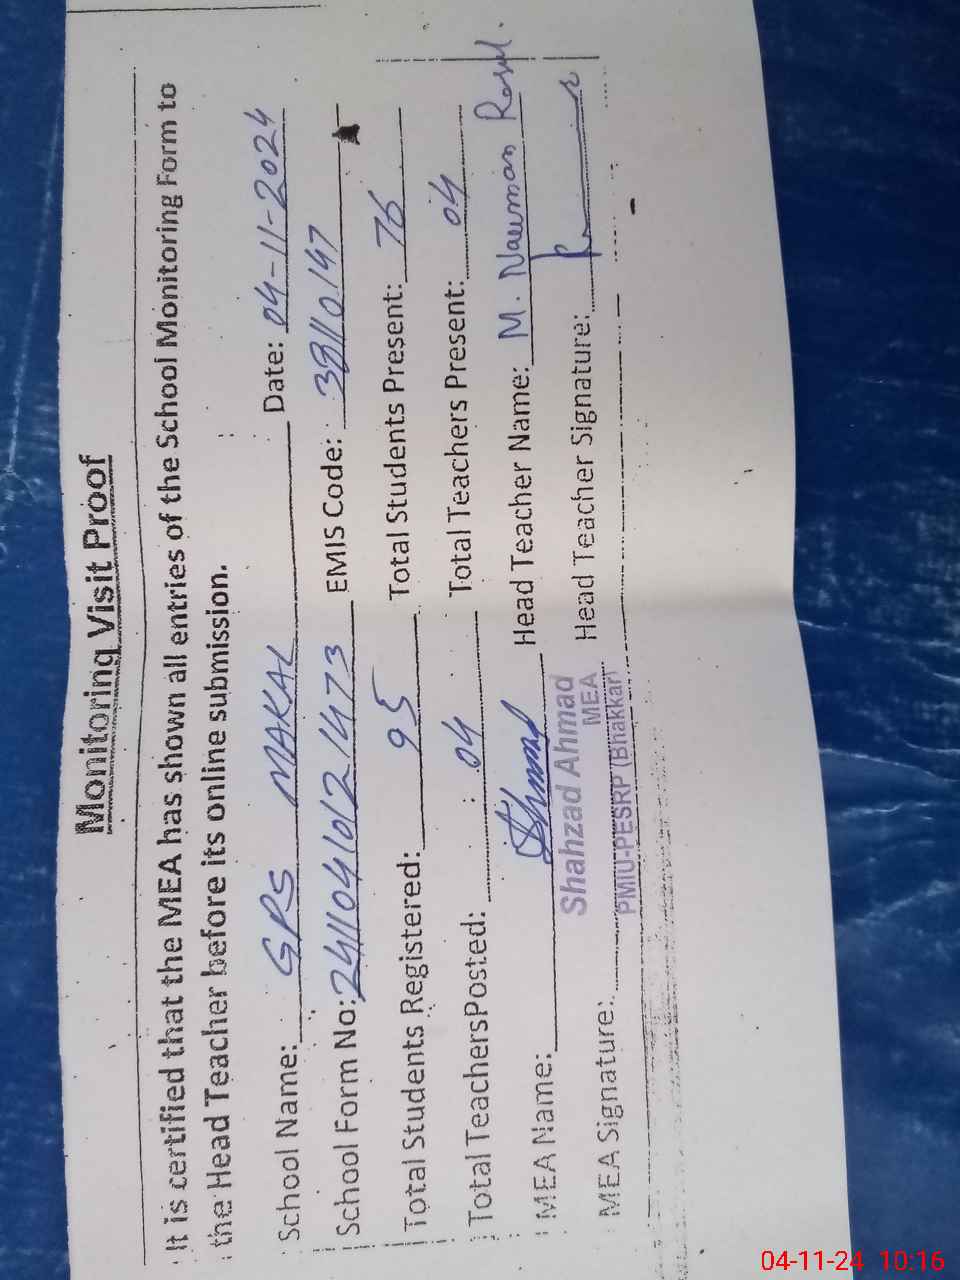 Monitoring Visit Proof
It is certified that the MEA has shown all entries of the School Monitoring Form to
the Head Teacher before its online submission.
School Name: GPS MAKAL Date: 04-11-2024
School Form No: 24110410121473 EMIS Code: 38110147
Total Students Registered: 95 Total Students Present: 76
Total TeachersPosted: 04 Total Teachers Present: 04
MEA Name: Head Teacher Name: M. Nauman Rasul.
Shahzad Ahmad
MEA
PMIU-PESRP (Bhakkar)
MEA Signature: Head Teacher Signature:
04-11-24 10:16